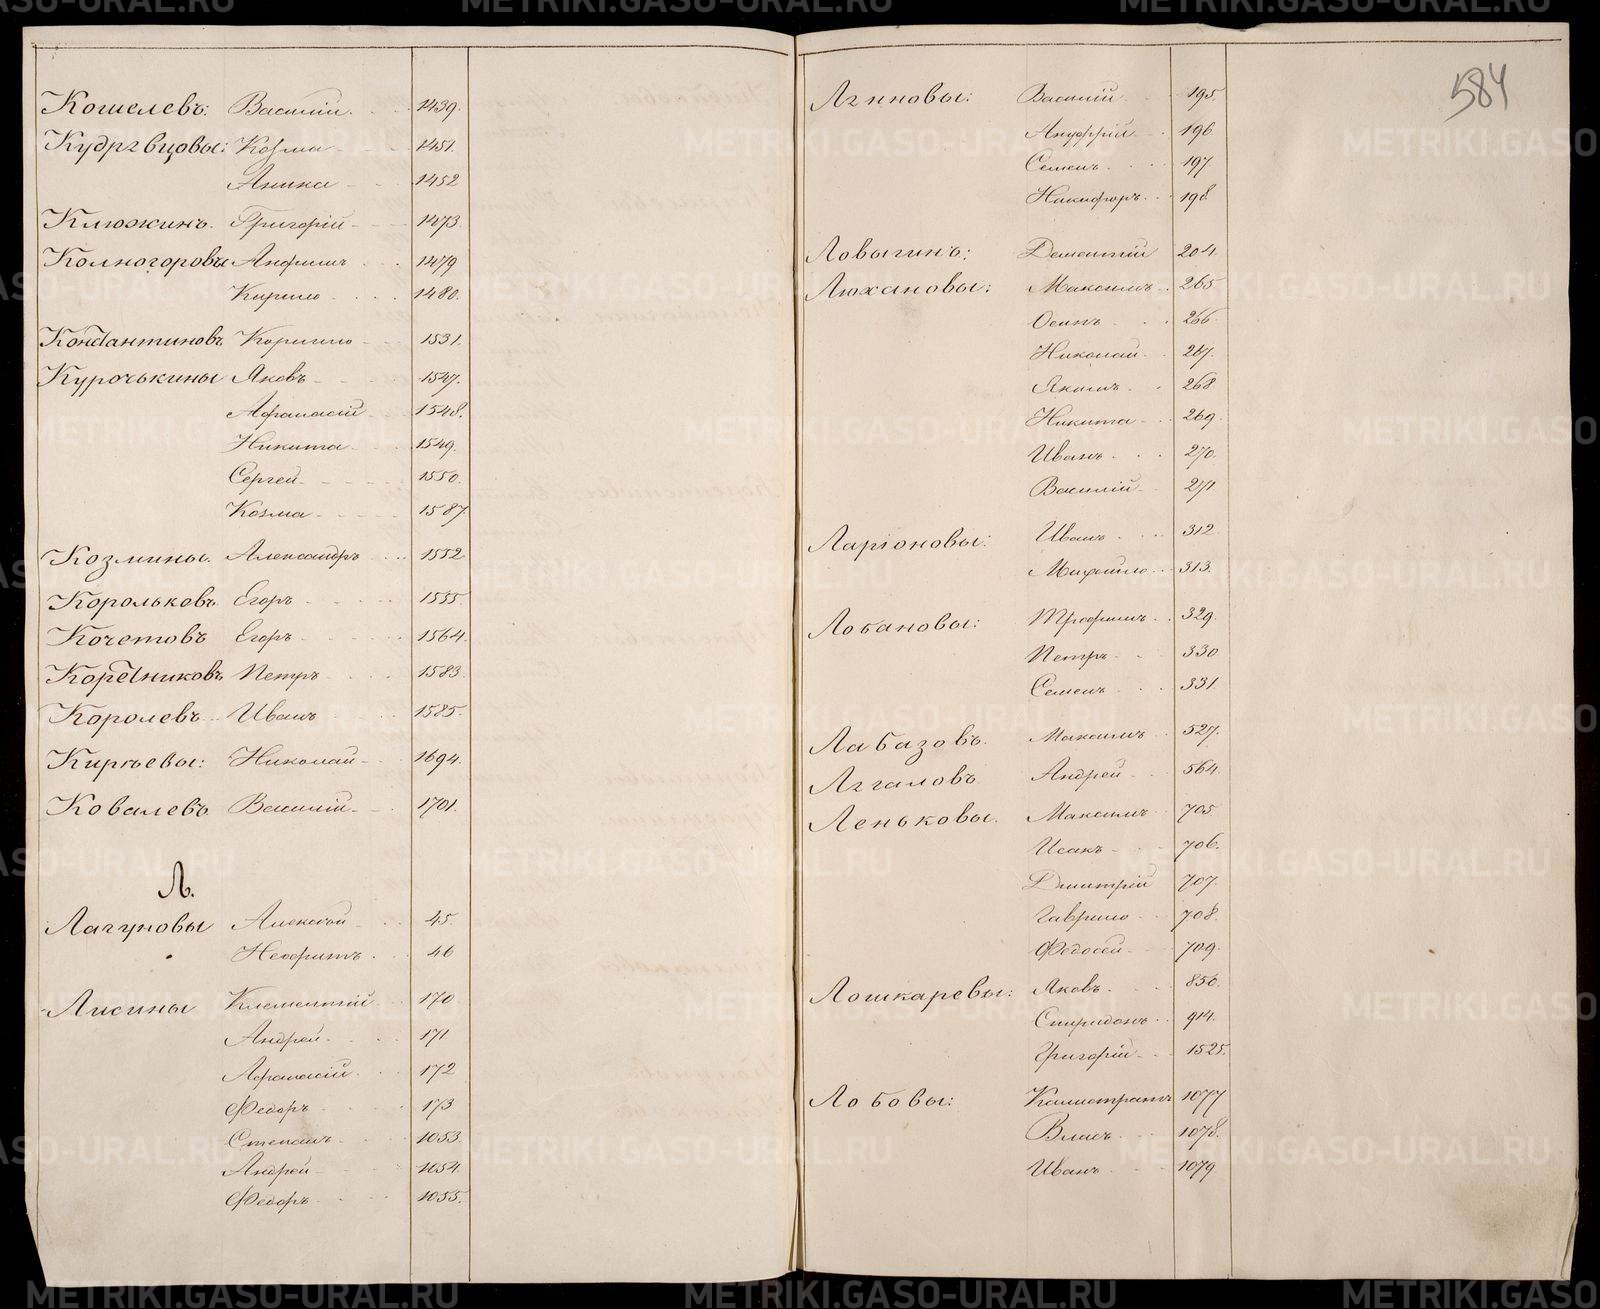 Кошелевъ: Василiй. 1439.
Кудрѣвцовы: Козма 1451.
Аника 1452
Клюжинъ. Григорiй 1473.
Колмогоровы Анфимъ 1479
Кирило 1480.
Константиновъ Корнило 1531.
Курочькины Яковъ 1547.
Афанасiй 1548.
Никита 1549.
Сергей 1550.
Козма 1587.
Козмины. Александръ 1552
Корольковъ Егоръ 1555.
Кочетовъ Егоръ 1564.
Петръ 1583.
Королевъ Иванъ 1585.
Киргѣевы: Николай 1694.
Ковалевъ Василiй 1701.
Л.
Лагуновы Алексѣй 45.
Неофитъ 46
Лисины Клементiй 170
Андрей 171
Афанасiй 172
Федоръ 173
Степанъ 1053.
Андрей 1054.
Федоръ 1055.
584
Василiй 195.
Ануфрiй 196
Семенъ 197
Никифоръ 198
Ловыгинъ: Дементiй 204.
Люхановы: Максимъ 265
Осипъ 266
Николай 267.
Якимъ 268
Никита 269.
Иванъ 270.
Василiй 271
Ларiоновы: Иванъ 312
Михайло 313.
Лобановы: Трофимъ 329.
Петръ 330
Семенъ 331
Лабазовъ. Максимъ 527.
Андрей 564.
Леньковы. Максимъ 705
Исакъ 706.
Дмитрiй 707.
Гаврило 708.
Федосей 709.
Лошкаревы: Яковъ 856.
Спиридонъ 914.
Григорiй 1525.
Лобовы: Калистратъ 1077
Власъ 1078.
Иванъ 1079